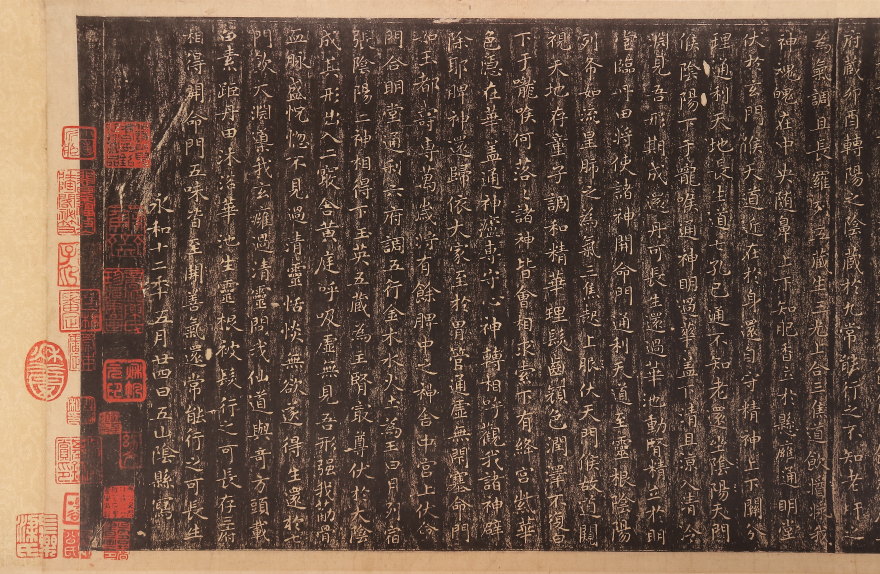 府藏卯酉轉陽之陰藏於九常能行之不知老肝之
為氣調且長羅列五藏生三光上合三焦道飲醬漿我
神魂魄在中央隨鼻上下知肥香立於懸膺通明堂
伏於玄門候天道近在於身還自守精神上下關分
理通利天地長生道七孔已通不知老還坐陰陽天門
候陰陽下于龍喉通神明過華蓋下清且涼入清冷
淵見吾形期成還丹可長生還過華池動腎精立於明
堂臨丹田將使諸神開命門通利天道至靈根陰陽
列布如流星肺之為氣三焦起上服伏天門候故道闚
視天地存童子調和精華理髮齒顏色潤澤不復白
下于龍喉何落落諸神皆會相求索下有絳宮紫華
色隱在華蓋通神廬專守心神轉相呼觀我諸神辟
除耶脾神還歸依大家至於胃管通虛無閉塞命門
如玉都壽專萬歲將有餘脾中之神舍中宮上伏命
門合明堂通利六府調五行金木水火土為王日月列宿
張陰陽二神相得下玉英五藏為主腎最尊伏於大陰
成其形出入二竅合黃庭呼吸虛無見吾形強我筋骨
血脈盛恍惚不見過清靈恬惔無欲遂得生還於七
門飲大淵導我玄雍過清靈問我仙道與奇方頭載
白素距丹田沐浴華池生靈根被髮行之可長存三府
相得開命門五味皆至開善氣還常能行之可長生
永和十二年五月廿四日五山陰縣寫